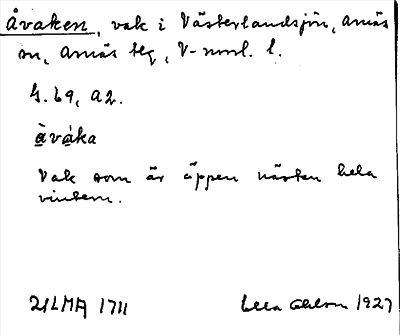 Åvaken, vak i Västerlandsjön, Arnäs
sn, Arnäs tlg, V-norrl. l.
G. 69, A2.
åvàka
Vak som är öppen nästan hela
vintern.
21LMA 1711
Ohlson 1927